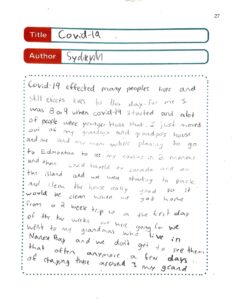 27
Title Covid-19
Author
Covid-19 effected many peoples lives and
still effects lives to this day for me I
was 8 or 9 when covid 19 started and alot
of people were younger than that. I just moved
out of my grandmas and grandpas house
and me and my mom were planning to go
to Edmonton to see my cousins in 2 months
and then covid traveled to canada and on
the island and we were starting to pack
and clean the house really good so it
would be clean when we got home
from a 2 week trip in the first day
of the two weeks we were going to
went to my grandmas who live in
Nanoose Bay and we don't get to see them
that often anymore a few days
of staying there around 3 my grand